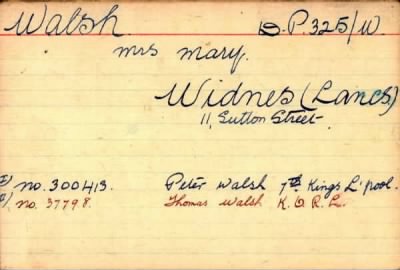 Walsh D.P.325/W
Mrs Mary.
Widnes (Lancs)
11, Sutton Street
1) no. 300413. Peter Walsh 7th Kings L'pool.
2) no. 37798. Thomas Walsh K.O.R.L.